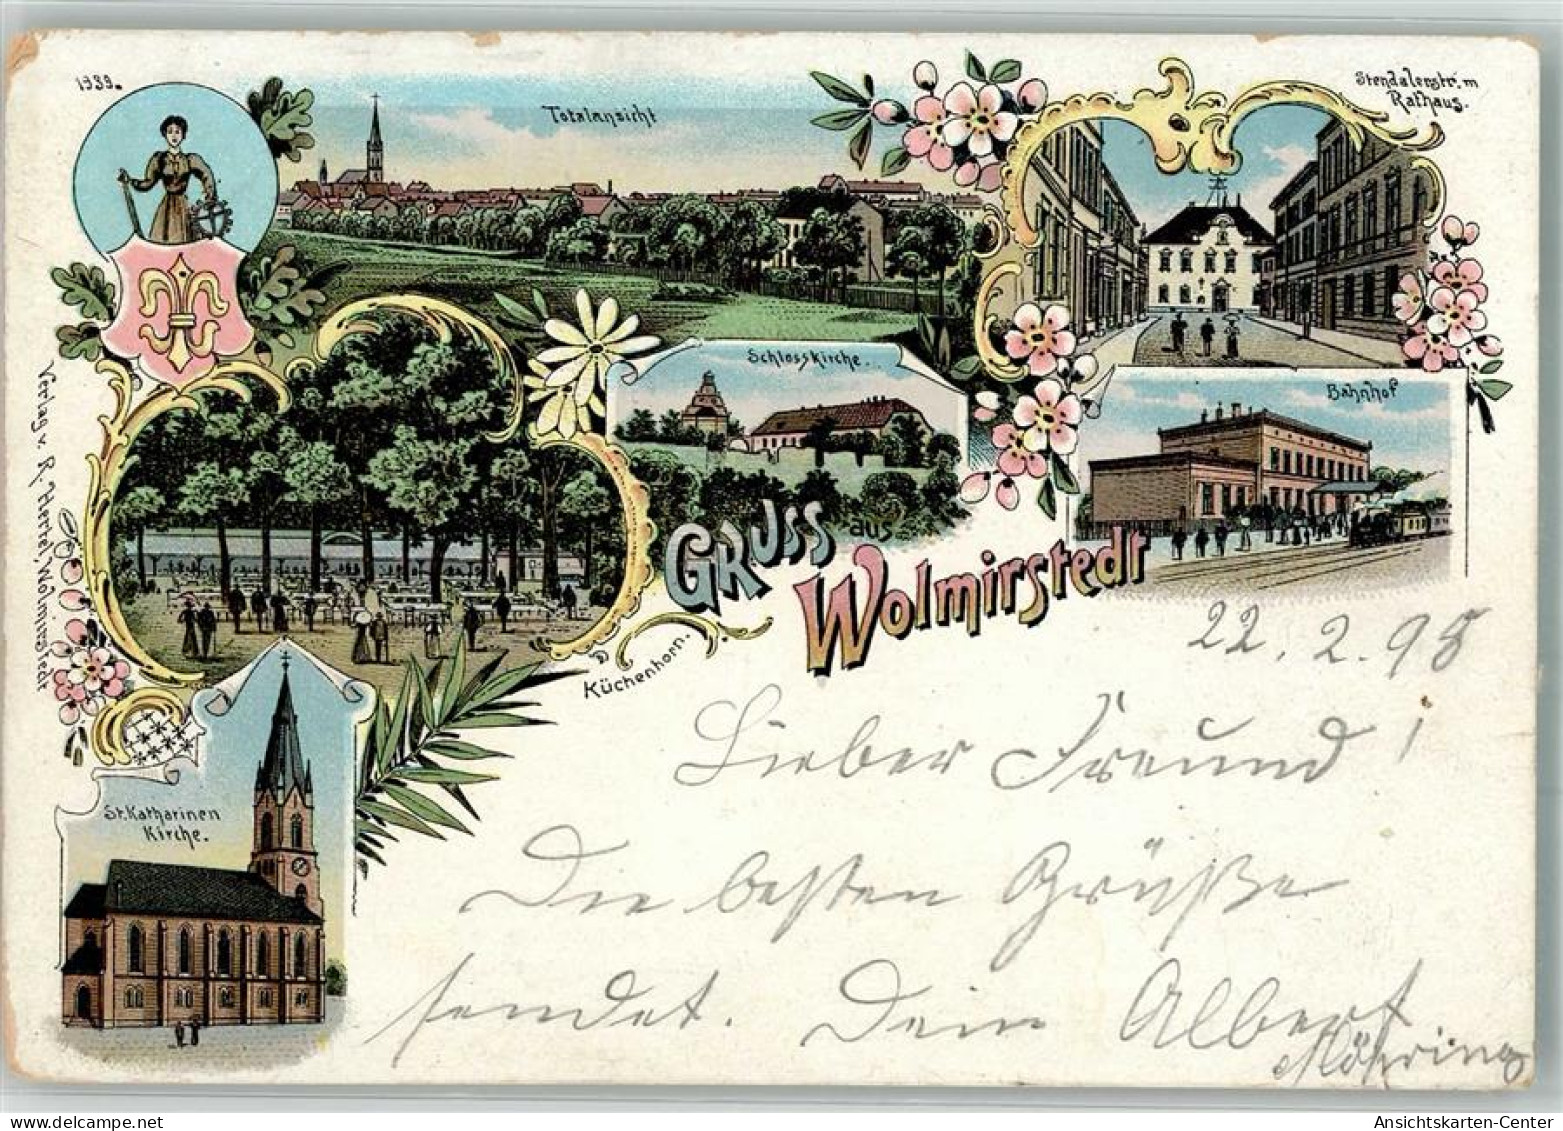 1939.
Totalansicht
Stendalerstr. m
Rathaus.
Schlosskirche.
Bahnhof
Verlag v. R. Hertel, Wolmirstedt
Gruss aus
Wolmirstedt
Küchenhorn.
St. Katharinen
Kirche.
22. 2. 98
Lieber Freund!
Die besten Grüße
sendet. Dein Albert
Möhring
Ansichtskarten-Center